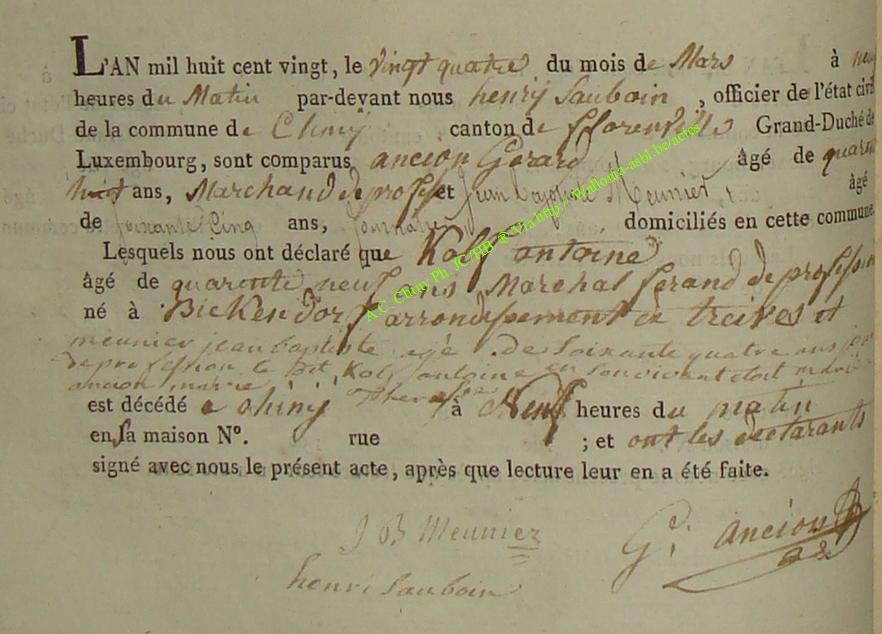 L'AN mil huit cent vingt, le vingt quatre du mois de Mars à neuf
heures du Matin par-devant nous henrÿ Sauboin, officier de l'état civil
de la commune de Chiny canton de fflorenville Grand-Duché de
Luxembourg, sont comparus ancion Gerard âgé de quarante
huit ans, Marchand de profess et Jean bapt Meunier, âgé
de soixante Cinq ans, Journalier, domiciliés en cette commune
Lesquels nous ont déclaré que Kolf antoine
âgé de quarente neuf ans Marchal ferand de profession
né à Bickendorf arrondissement de treives et
meunier jean baptiste agé de soixante quatre ans
de profession le dit Kolf antoine en son vivent etoit marié
ancion marie Therese
est décédé a chinÿ à Neuf heures du matin
en sa maison N°. rue ; et ont les declarants
signé avec nous le présent acte, après que lecture leur en a été faite.
J B Meunier
G: ancion
henri Sauboin
A.C. Chiny Ph. JC/HB @ Via http://wallonia-asbl.be/actes